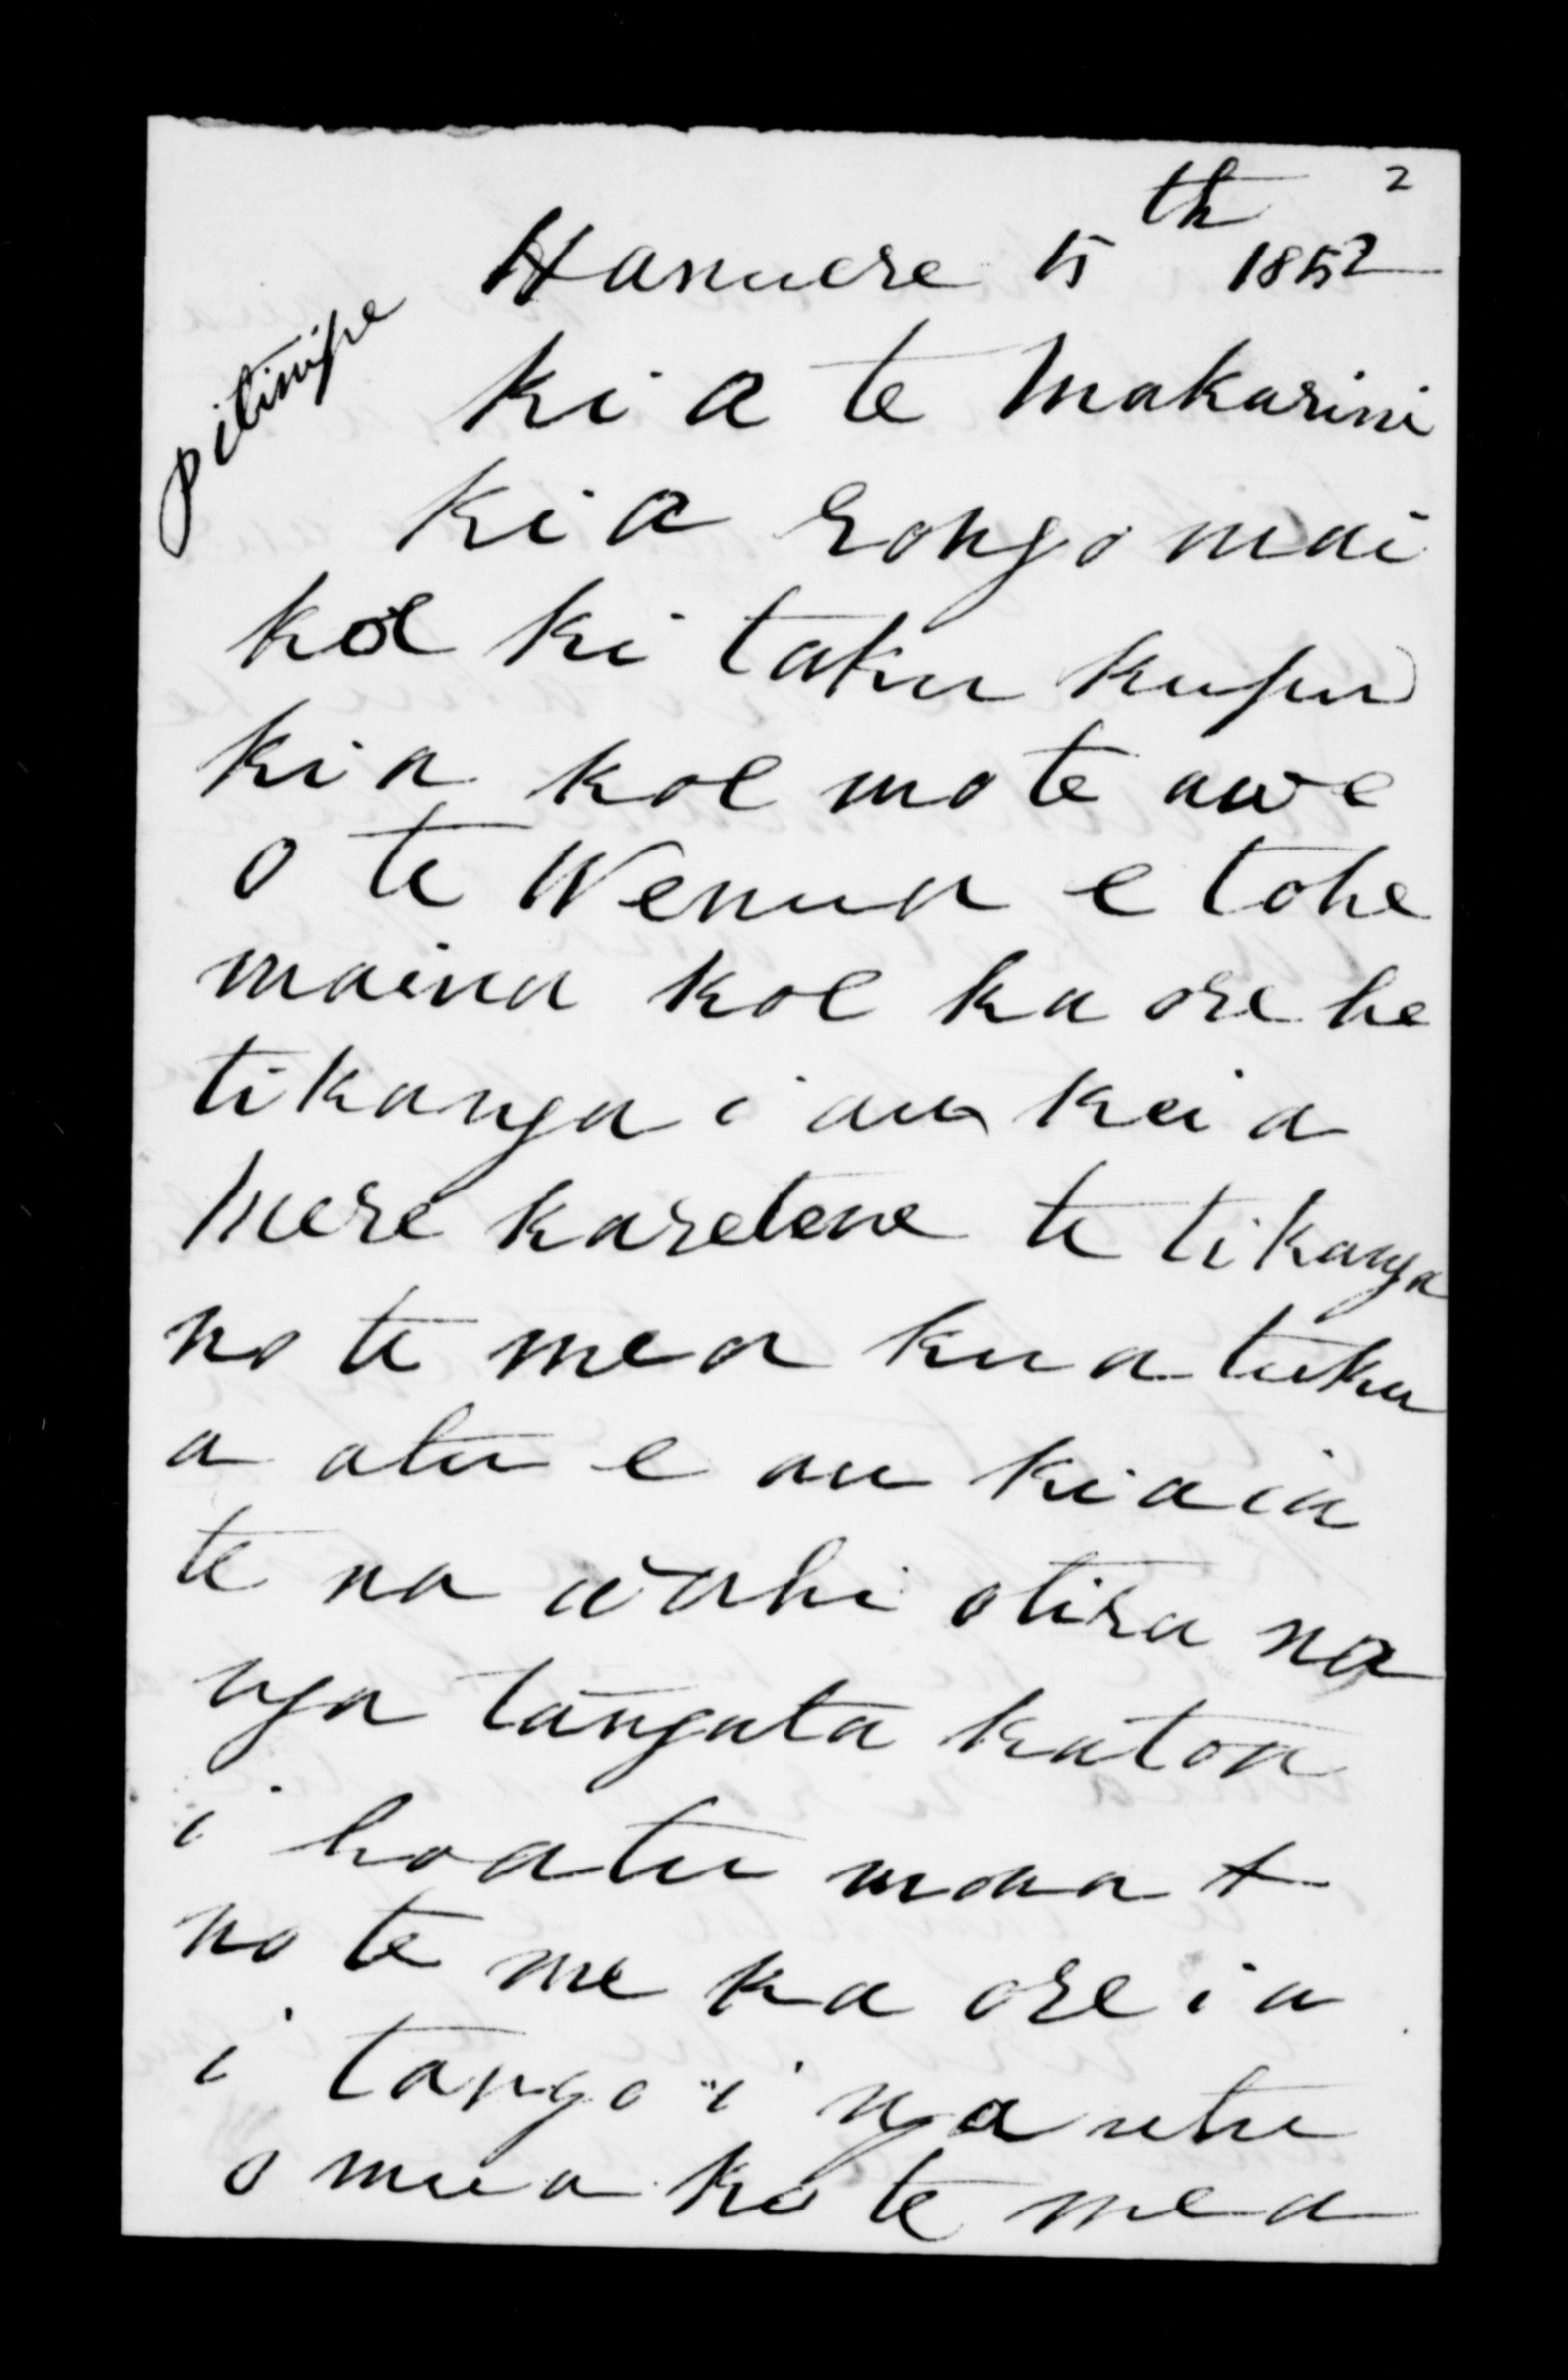 2
Hanuere 5th 1852
pitinipe
Ki a te Makarini
Ki a Rongo mai
koe ki taku kupu
ki a koe mo te awe
o te Wenua e tohe
maina koe ka ore he
tikanga i au kei a
Mere karetene te tikanga
no te mea ku a tuku
a atu e au ki aia
te na wahi otira na
nga tangata katoa
i hoatu mona +
no te me ka ore i a
i tango i nga utu
o mua ko te mea